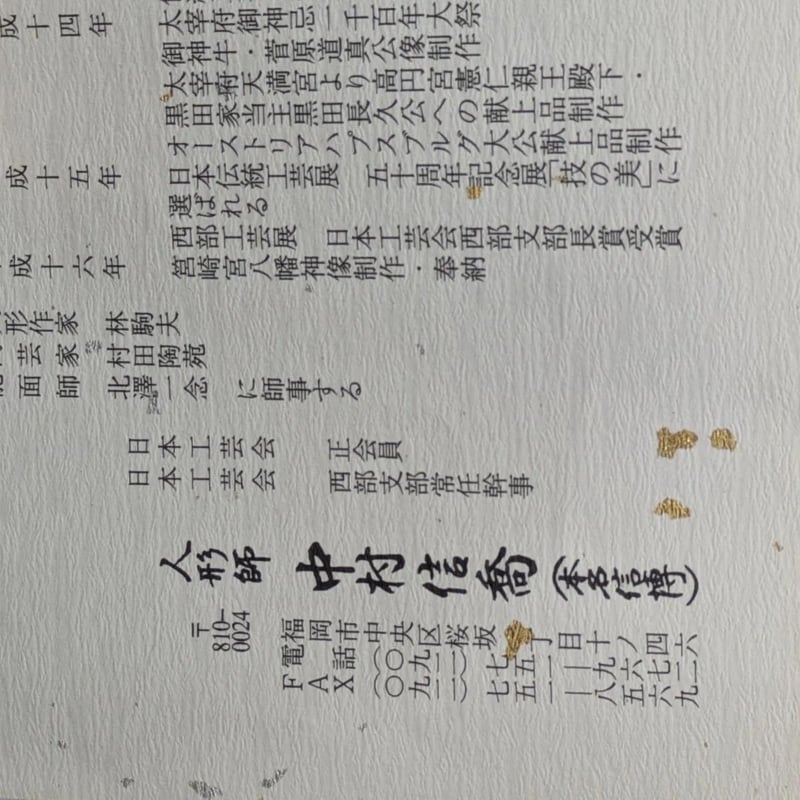 成十四年 太宰府御神忌一千百年大祭
御神牛・菅原道真公像制作
太宰府天満宮より高円宮憲仁親王殿下・
黒田家当主黒田長久公への献上品制作
オーストリアハプスブルグ大公献上品制作
成十五年 日本伝統工芸展 五十周年記念展「技の美」に
選ばれる
西部工芸展 日本工芸会西部支部長賞受賞
成十六年 筥崎宮八幡神像制作・奉納
形作家 林駒夫
芸家 村田陶苑
面師 北澤一念 に師事する
日本工芸会 正会員
日本工芸会 西部支部常任幹事
人形師 中村信喬（本名信博）
〒810-0024
福岡市中央区桜坂 丁目十ノ四六
電話（〇九二）七五一―九六七二
FAX（〇九二）七五一―八五六九